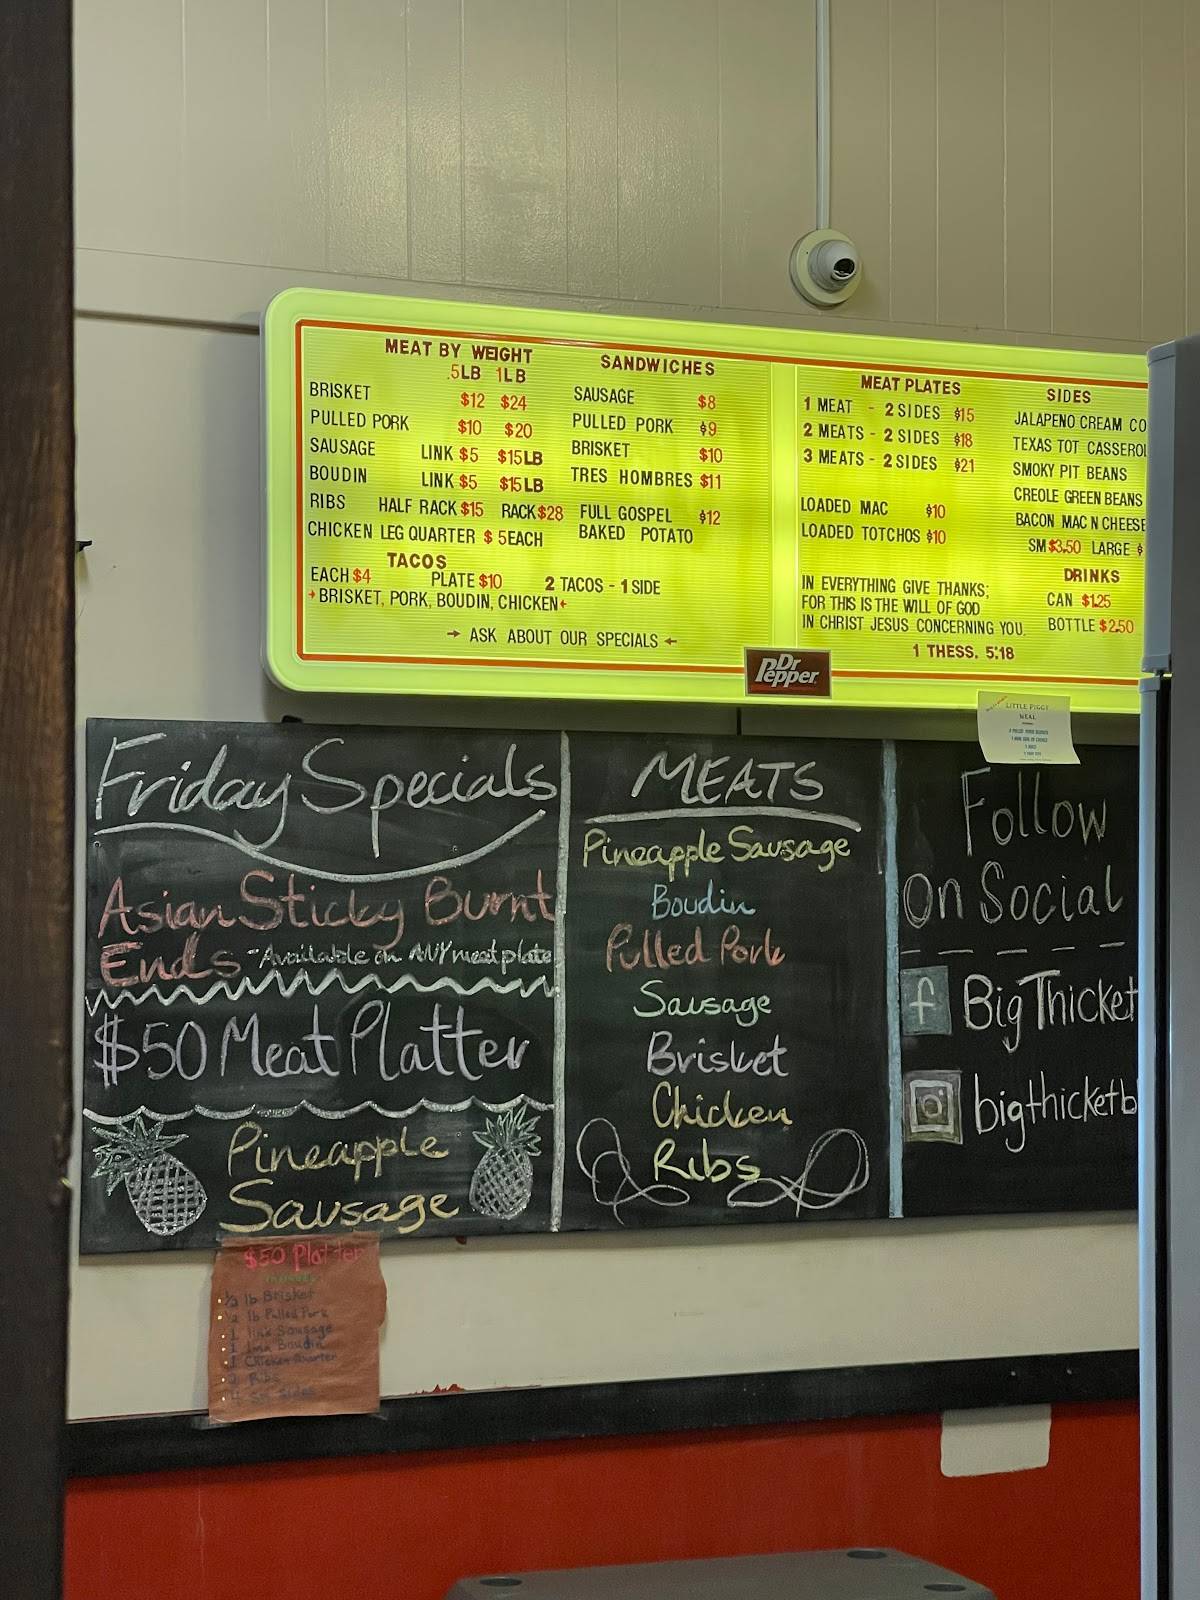 MEAT BY WEIGHT
.5LB 1LB
BRISKET $12 $24
PULLED PORK $10 $20
SAUSAGE LINK $5 $15LB
BOUDIN LINK $5 $15LB
RIBS HALF RACK $15 RACK $28
CHICKEN LEG QUARTER $5EACH
TACOS
EACH $4 PLATE $10 2 TACOS - 1 SIDE
BRISKET, PORK, BOUDIN, CHICKEN
→ ASK ABOUT OUR SPECIALS ←
SANDWICHES
SAUSAGE $8
PULLED PORK $9
BRISKET $10
TRES HOMBRES $11
FULL GOSPEL $12
BAKED POTATO
MEAT PLATES
1 MEAT - 2 SIDES $15
2 MEATS - 2 SIDES $18
3 MEATS - 2 SIDES $21
LOADED MAC $10
LOADED TOTCHOS $10
IN EVERYTHING GIVE THANKS;
FOR THIS IS THE WILL OF GOD
IN CHRIST JESUS CONCERNING YOU.
1 THESS. 5:18
SIDES
JALAPENO CREAM CO
TEXAS TOT CASSEROL
SMOKY PIT BEANS
CREOLE GREEN BEANS
BACON MAC N CHEESE
SM $3.50 LARGE $
DRINKS
CAN $1.25
BOTTLE $2.50
Dr
Pepper
LITTLE PIGGY
MEAL
Friday Specials
Asian Sticky Burnt
Ends - Available on ANY meat plate
$50 Meat Platter
Pineapple
Sausage
MEATS
Pineapple Sausage
Boudin
Pulled Pork
Sausage
Brisket
Chicken
Ribs
Follow
On Social
f Big Thicket
bigthicketb
$50 Platter
1/2 lb Brisket
1/2 lb Pulled Pork
1 link Sausage
1 link Boudin
1 Chicken Quarter
Ribs
Sides